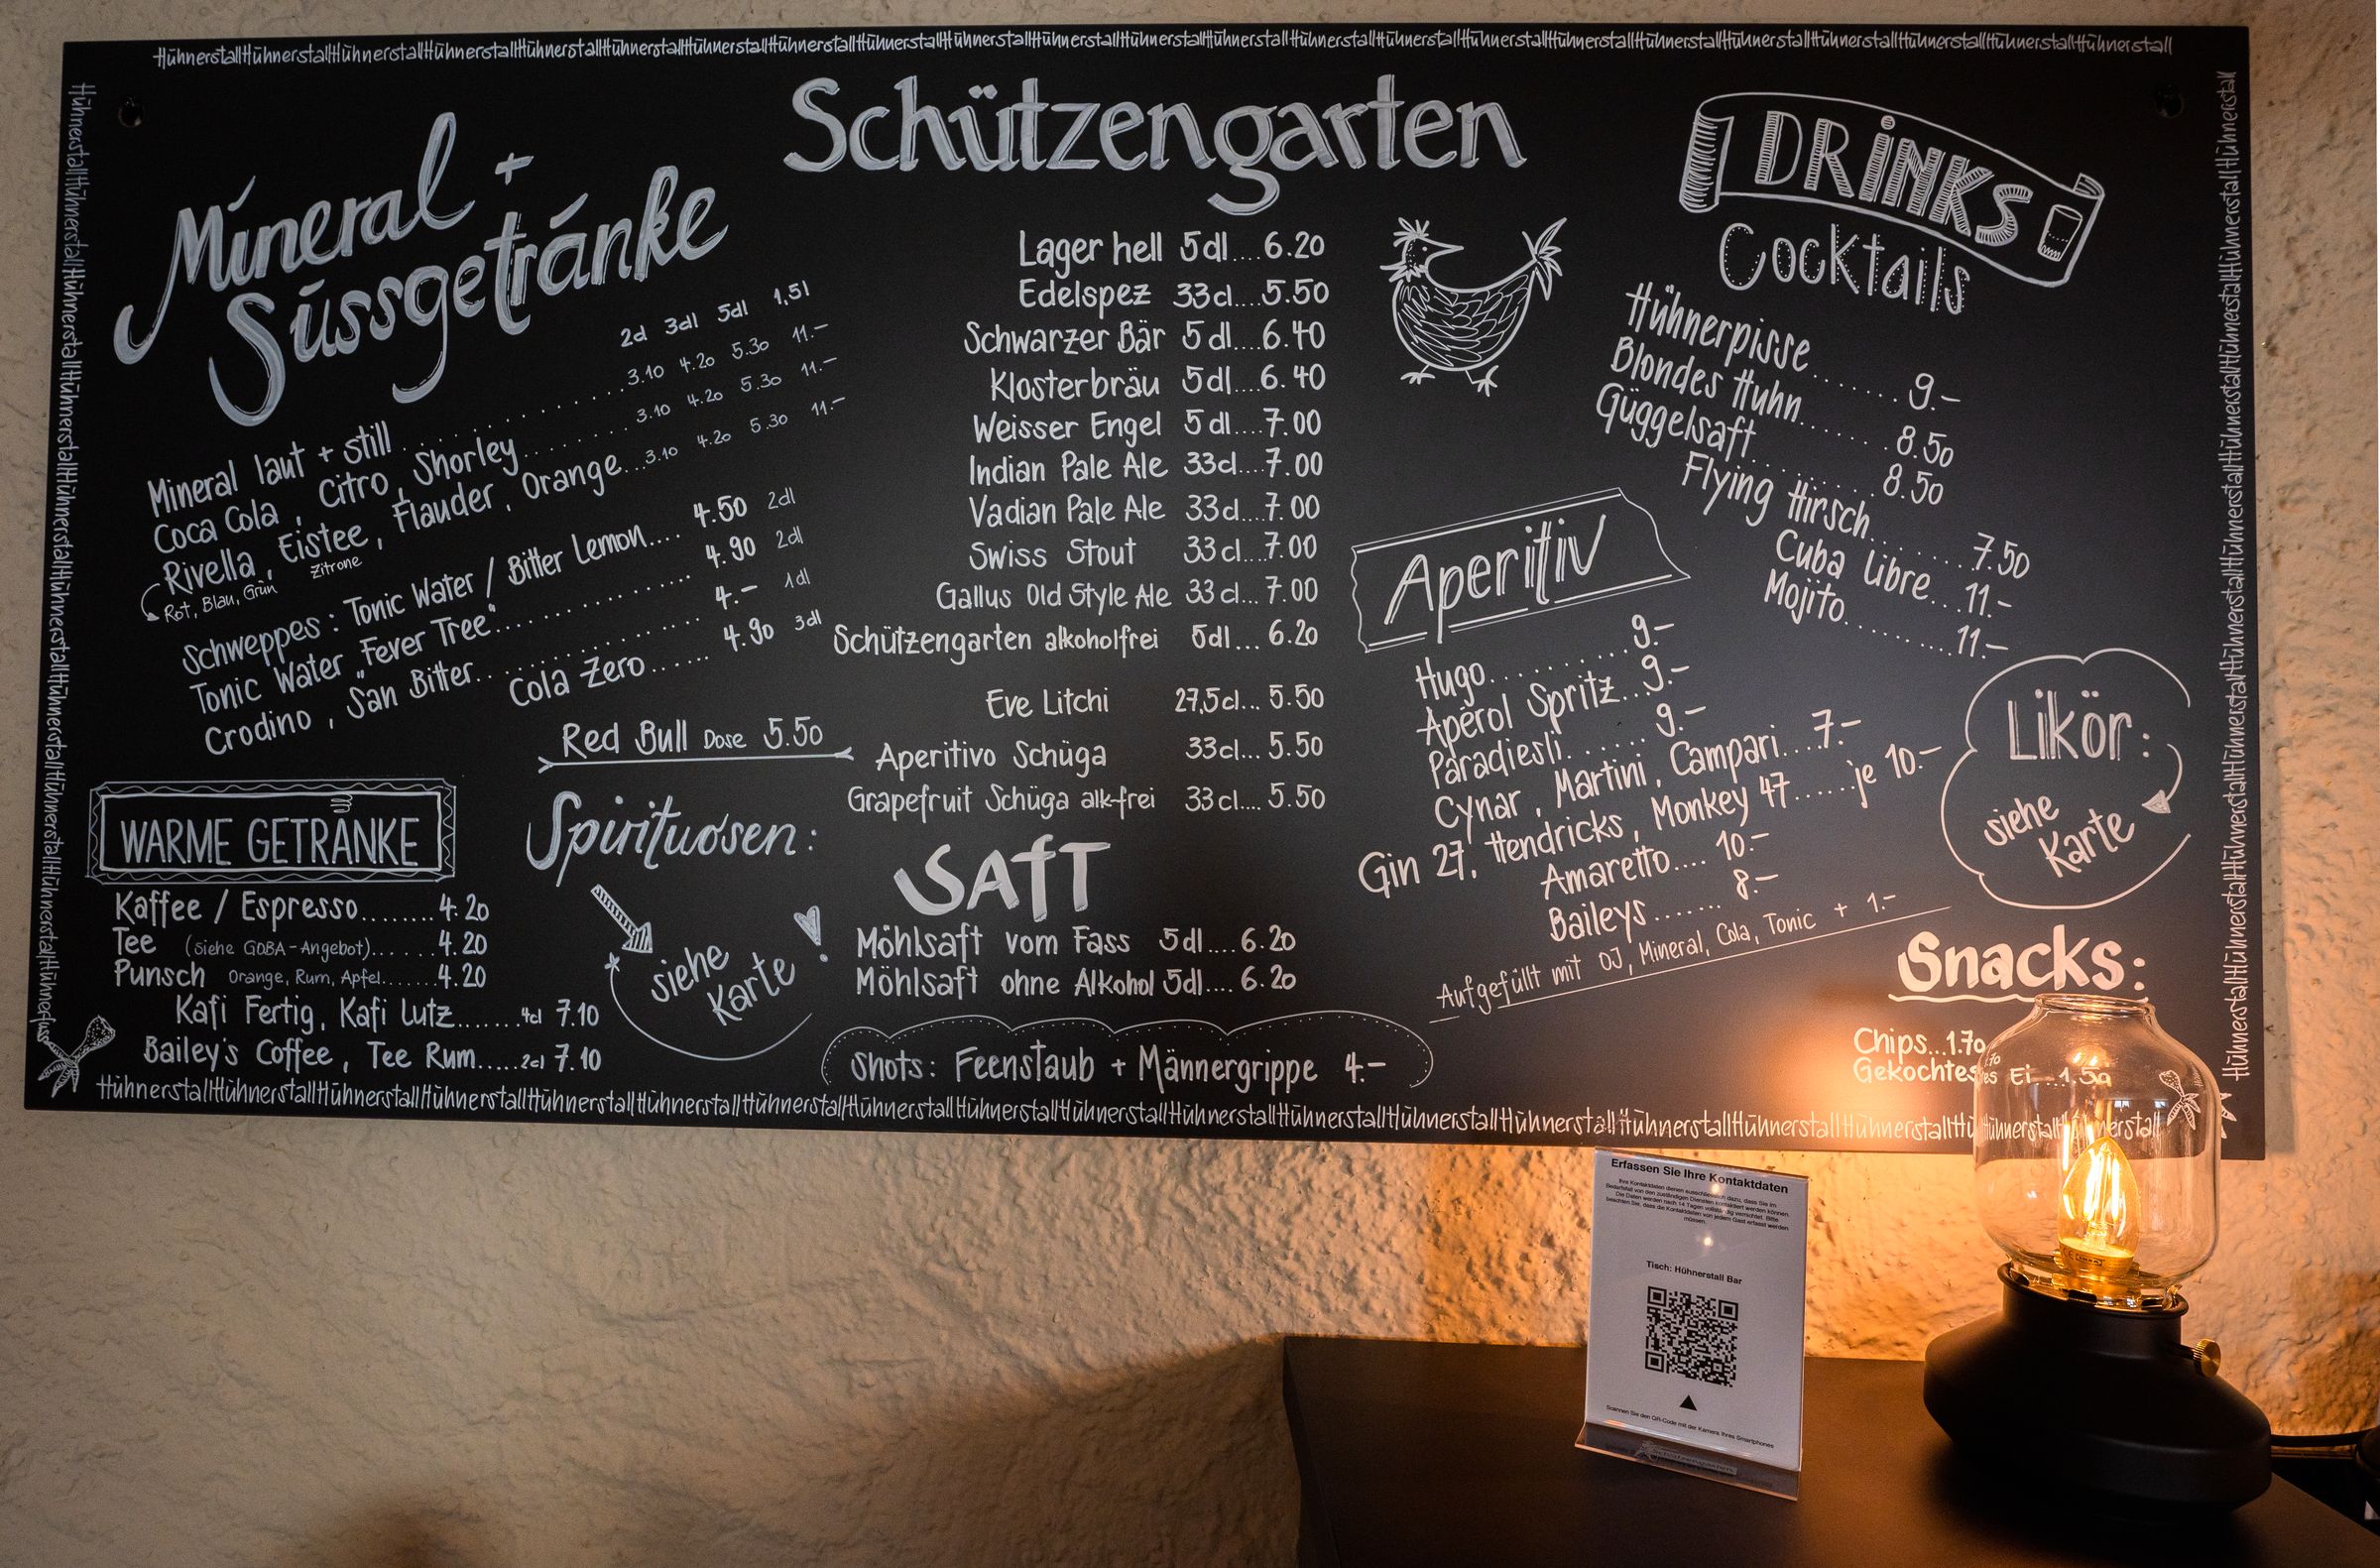 HühnerstallHühnerstallHühnerstallHühnerstallHühnerstallHühnerstallHühnerstallHühnerstallHühnerstallHühnerstallHühnerstallHühnerstallHühnerstallHühnerstallHühnerstallHühnerstallHühnerstallHühnerstallHühnerstallHühnerstallHühnerstallHühnerstallHühnerstall
Mineral +
Süssgetränke
2d 3dl 5dl 1,5l
Mineral laut + still 3.10 4.20 5.30 11.–
Coca Cola, Citro, Shorley 3.10 4.20 5.30 11.–
Rivella, Eistee, Flauder, Orange...3.10 4.20 5.30 11.–
Rot, Blau, Grün Zitrone
Schweppes: Tonic Water / Bitter Lemon.... 4.50 2dl
Tonic Water „Fever Tree" 4.90 2dl
Crodino, San Bitter 4.– 1dl
Cola Zero....... 4.90 3dl
Red Bull Dose 5.50
WARME GETRÄNKE
Kaffee / Espresso........4.20
Tee (siehe GOBA-Angebot).......4.20
Punsch Orange, Rum, Apfel.......4.20
Kafi Fertig, Kafi Lutz.......4cl 7.10
Bailey's Coffee, Tee Rum.....2cl 7.10
Spirituosen:
siehe
Karte
Schützengarten
Lager hell 5dl....6.20
Edelspez 33cl....5.50
Schwarzer Bär 5dl....6.40
Klosterbräu 5dl....6.40
Weisser Engel 5dl....7.00
Indian Pale Ale 33cl....7.00
Vadian Pale Ale 33cl....7.00
Swiss Stout 33cl...7.00
Gallus Old Style Ale 33cl...7.00
Schützengarten alkoholfrei 5dl... 6.20
Eve Litchi 27,5cl... 5.50
Aperitivo Schüga 33cl... 5.50
Grapefruit Schüga alk-frei 33cl.... 5.50
SAFT
Möhlsaft vom Fass 5dl.... 6.20
Möhlsaft ohne Alkohol 5dl.... 6.20
Shots: Feenstaub + Männergrippe 4.–
DRINKS
Cocktails
Hühnerpisse........9.–
Blondes Huhn.......8.50
Güggelsaft..........8.50
Flying Hirsch.......7.50
Cuba Libre...11.–
Mojito..........11.–
Aperitiv
Hugo..........9.–
Aperol Spritz..9.–
Paradiesli.......9.–
Cynar, Martini, Campari....7.–
Gin 27, Hendricks, Monkey 47......je 10.–
Amaretto.... 10.–
Baileys....... 8.–
Aufgefüllt mit OJ, Mineral, Cola, Tonic + 1.–
Likör:
siehe
Karte
Snacks:
Chips...1.70
Gekochtes Ei...1.50
Erfassen Sie Ihre Kontaktdaten
Ihre Kontaktdaten dienen ausschliesslich dazu, dass Sie im
Bedarfsfall von den zuständigen Diensten kontaktiert werden können.
Die Daten werden nach 14 Tagen vollständig vernichtet. Bitte
beachten Sie, dass die Kontaktdaten von jedem Gast erfasst werden
müssen.
Tisch: Hühnerstall Bar
Scannen Sie den QR-Code mit der Kamera Ihres Smartphones